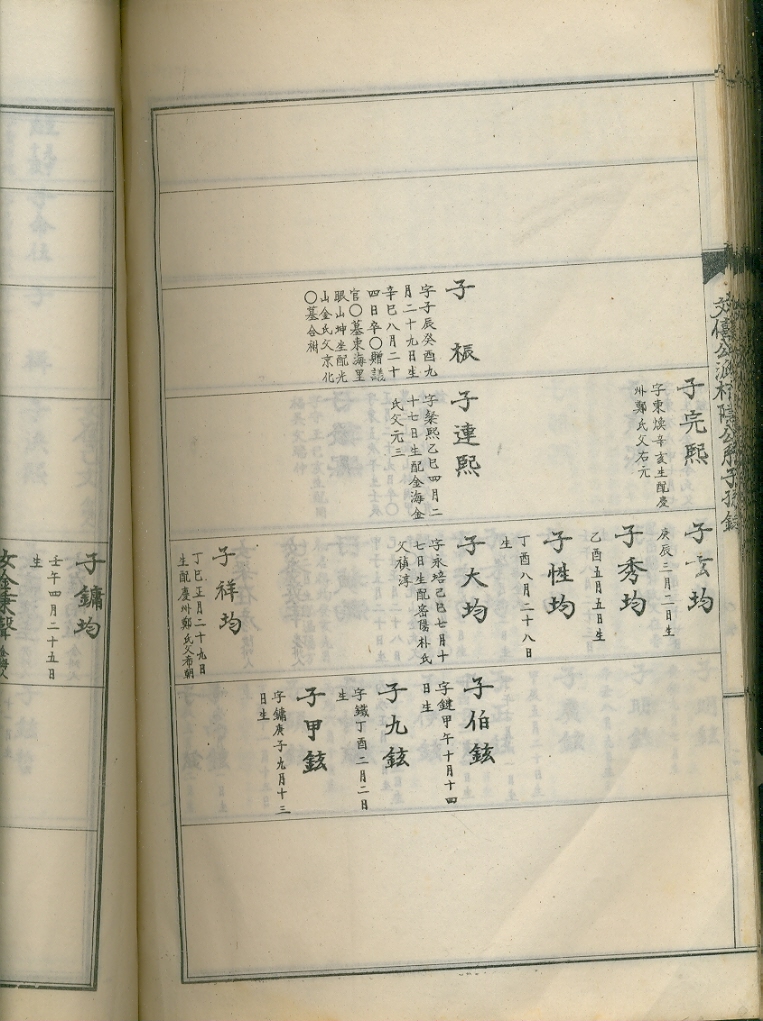 子振
字子辰癸酉九
月二十九日生
辛巳八月二十
四日卒〇贈議
官〇墓東海里
眠山坤坐配光
山金氏父京化
〇墓合祔
子完熙
字東煥辛亥生配慶
州鄭氏父右元
子連熙
字粲熙乙巳四月二
十七日生配金海金
氏父元三
子玄均
庚辰三月二日生
子秀均
乙酉五月五日生
子性均
丁酉八月二十八日
生
子大均
字永培己巳七月十
七日生配密陽朴氏
父禎淳
子祥均
丁巳正月二十九日
生配慶州鄭氏父希朝
子伯鉉
字鍵甲午十月十四
日生
子九鉉
字鐵丁酉二月二日
生
子甲鉉
字鏞庚子九月十三
日生
子鏞均
壬午四月二十五日
生